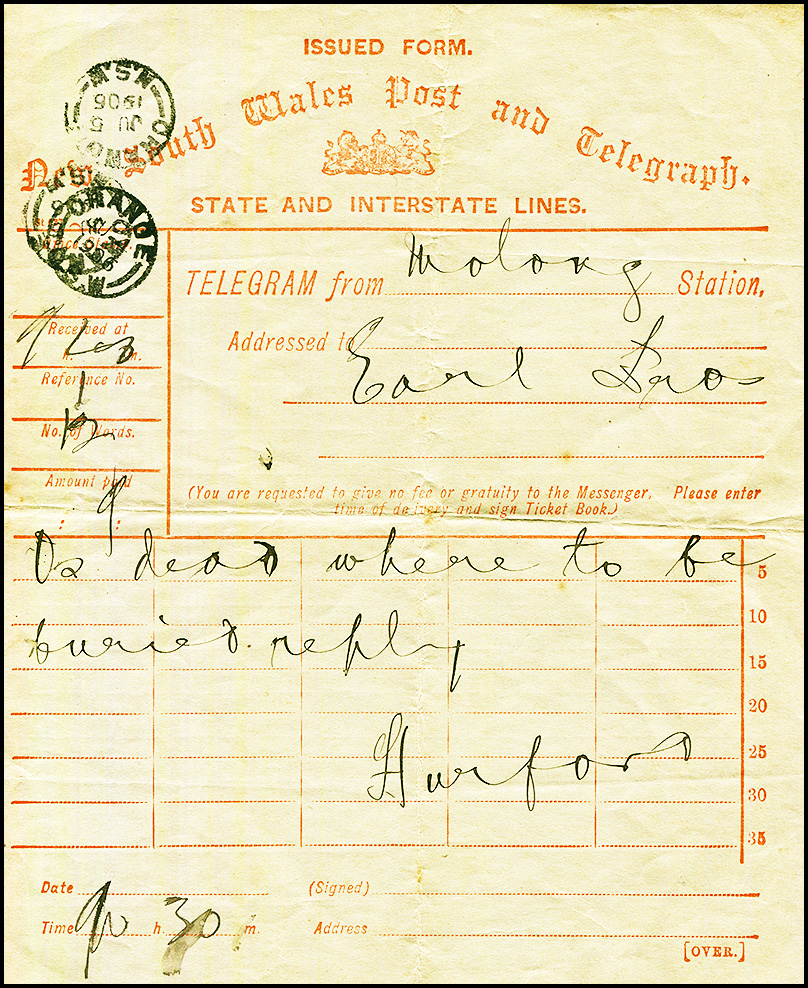 ISSUED FORM.
New South Wales Post and Telegraph.
STATE AND INTERSTATE LINES.
ORANGE N.S.W
JU 5
1906
ORANGE
N.S.W
TELEGRAM from Molong Station,
Addressed to
Earl Bros
Received at
Reference No.
1
No. of Words.
12
Amount paid
: 9 :
(You are requested to give no fee or gratuity to the Messenger. Please enter
time of delivery and sign Ticket Book.)
dead where to be
5
10
buried. reply
15
20
Hurford
25
30
35
Date (Signed)
Time h. 30 m. Address
[OVER.]